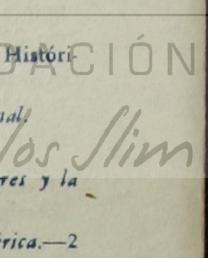 Históri-
DACIÓN
nal.
los Slim
res y la
rica.—2